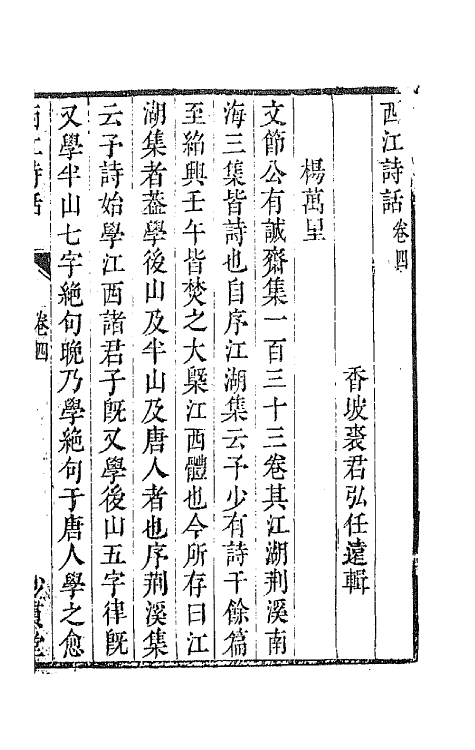 西江詩話卷四
香坡裘君弘任遠輯
楊萬里
文節公有誠齋集一百三十三卷其江湖荆溪南
海三集皆詩也自序江湖集云予少有詩千餘篇
至紹興壬午皆焚之大槩江西體也今所存曰江
湖集者葢學後山及半山及唐人者也序荆溪集
云予詩始學江西諸君子旣又學後山五字律旣
又學半山七字絶句晚乃學絶句于唐人學之愈
西江詩話 卷四